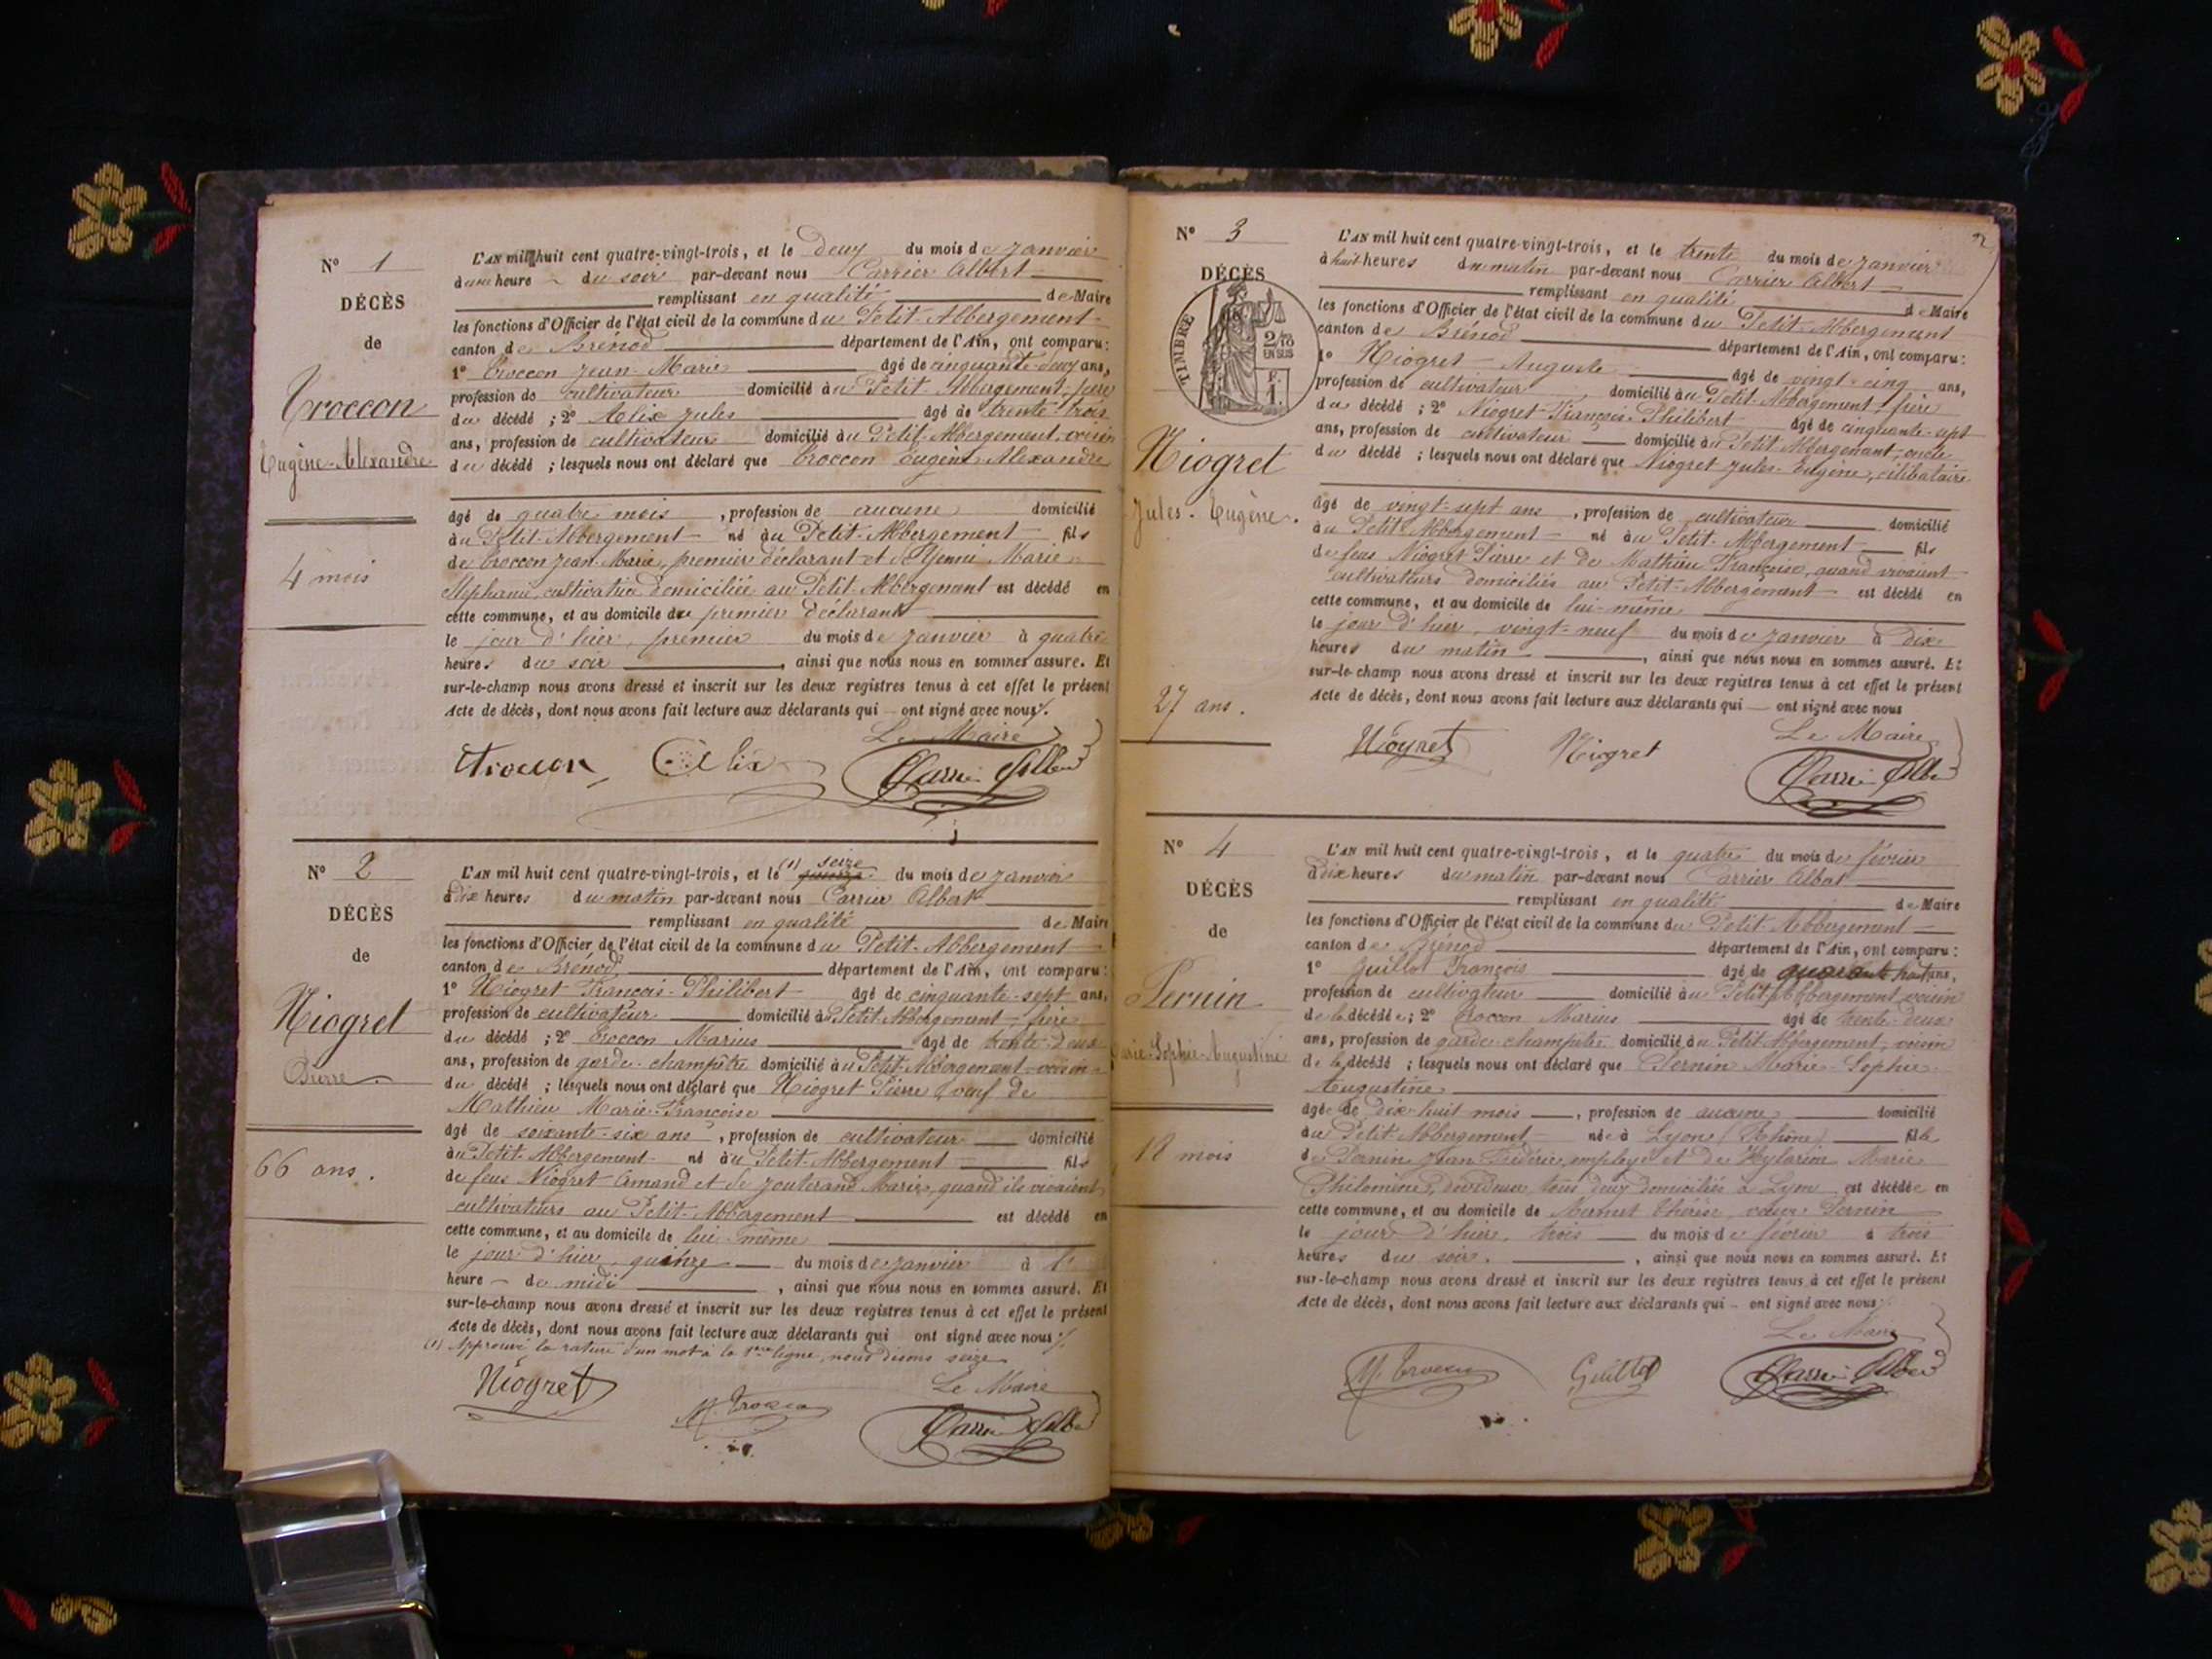 N° 1
DÉCÈS
de
Troccon
Eugène-Alexandre
4 mois
L'AN mil huit cent quatre-vingt-trois, et le deux du mois de janvier
à une heure du soir par-devant nous Carrier Albert
remplissant en qualité de Maire
les fonctions d'Officier de l'état civil de la commune du Petit-Abbergement
canton de Brénod département de l'Ain, ont comparu:
1° Troccon Jean-Marie âgé de cinquante-deux ans,
profession de cultivateur domicilié au Petit Abbergement, père
du décédé ; 2° Alix Jules âgé de trente-trois
ans, profession de cultivateur domicilié au Petit-Abbergement, voisin
du décédé ; lesquels nous ont déclaré que Troccon Eugène Alexandre
âgé de quatre mois , profession de aucune domicilié
au Petit-Abbergement né au Petit-Abbergement fils
de Troccon Jean-Marie, premier déclarant et de Marie
Stéphanie, cultivatrice domiciliée au Petit-Abbergement est décédé en
cette commune, et au domicile du premier déclarant
le jour d'hier, premier du mois de janvier à quatre
heures du soir , ainsi que nous nous en sommes assuré. Et
sur-le-champ nous avons dressé et inscrit sur les deux registres tenus à cet effet le présent
Acte de décès, dont nous avons fait lecture aux déclarants qui ont signé avec nous.
Le Maire
Troccon Alix Carrier Albert
N° 2
DÉCÈS
de
Niogret
Pierre
66 ans.
L'AN mil huit cent quatre-vingt-trois, et le (1) seize du mois de janvier
à dix heures du matin par-devant nous Carrier Albert
remplissant en qualité de Maire
les fonctions d'Officier de l'état civil de la commune du Petit-Abbergement
canton de Brénod département de l'Ain, ont comparu:
1° Niogret François-Philibert âgé de cinquante-sept ans,
profession de cultivateur domicilié au Petit Abbergement, frère
du décédé ; 2° Troccon Marius âgé de trente-deux
ans, profession de garde-champêtre domicilié au Petit-Abbergement voisin
du décédé ; lesquels nous ont déclaré que Niogret Pierre veuf de
Mathieu Marie-Françoise
âgé de soixante-six ans , profession de cultivateur domicilié
au Petit Abbergement né au Petit-Abbergement fils
de feus Niogret Amand et de Jouterand Marie, quand ils vivaient
cultivateurs au Petit-Abbergement est décédé en
cette commune, et au domicile de lui-même
le jour d'hier, quinze du mois de janvier à l'
heure de midi , ainsi que nous nous en sommes assuré. Et
sur-le-champ nous avons dressé et inscrit sur les deux registres tenus à cet effet le présent
Acte de décès, dont nous avons fait lecture aux déclarants qui ont signé avec nous
(1) Approuvé la rature d'un mot à la 1ère ligne, nous disons seize
Le Maire
Niogret M. Troccon Carrier Albert
2
N° 3
DÉCÈS
TIMBRE
2/10
EN SUS
Niogret
Jules-Eugène.
27 ans.
L'AN mil huit cent quatre-vingt-trois, et le trente du mois de janvier
à huit heures du matin par-devant nous Carrier Albert
remplissant en qualité de Maire
les fonctions d'Officier de l'état civil de la commune du Petit-Abbergement
canton de Brénod département de l'Ain, ont comparu:
1° Niogret Auguste âgé de vingt-cinq ans,
profession de cultivateur domicilié au Petit-Abbergement, frère
du décédé ; 2° Niogret François-Philibert âgé de cinquante-sept
ans, profession de cultivateur domicilié au Petit-Abbergement, oncle
du décédé ; lesquels nous ont déclaré que Niogret Jules-Eugène, célibataire
âgé de vingt-sept ans , profession de cultivateur domicilié
au Petit-Abbergement né au Petit-Abbergement fils
de feus Niogret Pierre et de Mathieu Françoise, quand vivaient
cultivateurs domiciliés au Petit-Abbergement est décédé en
cette commune, et au domicile de lui-même
le jour d'hier, vingt-neuf du mois de janvier à dix
heures du matin , ainsi que nous nous en sommes assuré. Et
sur-le-champ nous avons dressé et inscrit sur les deux registres tenus à cet effet le présent
Acte de décès, dont nous avons fait lecture aux déclarants qui ont signé avec nous
Le Maire
Niogret Niogret Carrier Albert
N° 4
DÉCÈS
de
Pernin
Marie-Sophie-Augustine
18 mois
L'AN mil huit cent quatre-vingt-trois, et le quatre du mois de février
à dix heures du matin par-devant nous Carrier Albert
remplissant en qualité de Maire
les fonctions d'Officier de l'état civil de la commune du Petit-Abbergement
canton de Brénod département de l'Ain, ont comparu:
1° Guillot François âgé de quarante huit ans,
profession de cultivateur domicilié au Petit Abbergement, voisin
de la décédée ; 2° Troccon Marius âgé de trente-deux
ans, profession de garde-champêtre domicilié au Petit Abbergement, voisin
de la décédé ; lesquels nous ont déclaré que Pernin Marie-Sophie-
Augustine
âgée de dix-huit mois , profession de aucune domicilié
au Petit-Abbergement née à Lyon (Rhône) fille
de Pernin Jean-Frédéric, employé et de Hylarion Marie
Philomène, dévideuse, tous deux domiciliés à Lyon est décédée en
cette commune, et au domicile de Mermet Thérèse veuve Pernin
le jour d'hier, trois du mois de février à trois
heures du soir. , ainsi que nous nous en sommes assuré. Et
sur-le-champ nous avons dressé et inscrit sur les deux registres tenus à cet effet le présent
Acte de décès, dont nous avons fait lecture aux déclarants qui ont signé avec nous
Le Maire
M. Troccon Guillot Carrier Albert